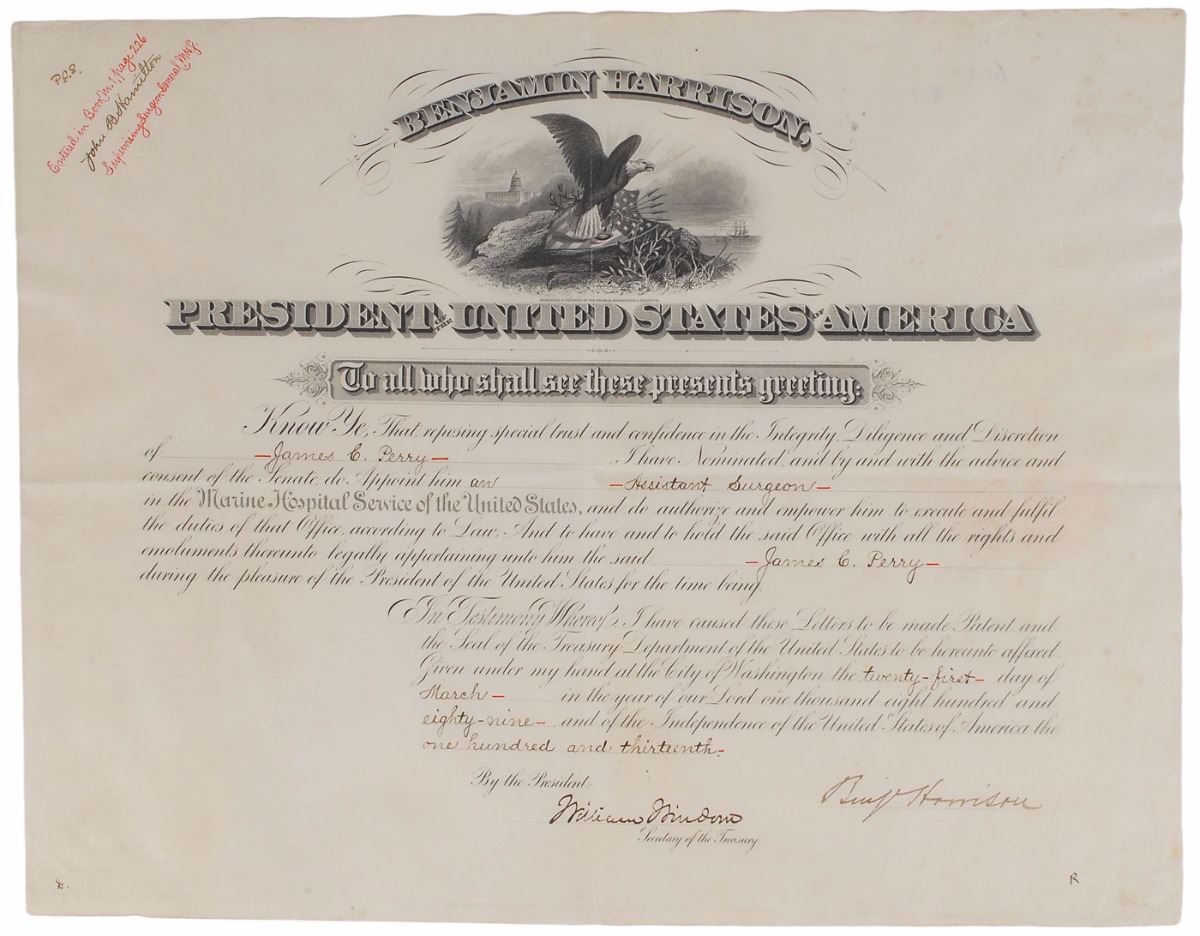 P.S.S.
Entered in Book No. 1, page 226
John B. Hamilton
Supervising Surgeon General, M.H.S.
BENJAMIN HARRISON,
PRESIDENT OF THE UNITED STATES OF AMERICA
To all who shall see these presents greeting:
Know Ye, That reposing special trust and confidence in the Integrity, Diligence and Discretion
of – James C. Perry – I have Nominated, and by and with the advice and
consent of the Senate, do Appoint him an – Assistant Surgeon –
in the Marine Hospital Service of the United States, and do authorize and empower him to execute and fulfil
the duties of that Office, according to Law. And to have and to hold the said Office with all the rights and
emoluments thereunto legally appertaining unto him the said – James C. Perry –
during the pleasure of the President of the United States for the time being.
In Testimony Whereof, I have caused these Letters to be made Patent and
the Seal of the Treasury Department of the United States to be hereunto affixed.
Given under my hand at the City of Washington, the twenty-first – day of
March – in the year of our Lord one thousand eight hundred and
eighty-nine – and of the Independence of the United States of America the
one hundred and thirteenth –
By the President:
Benj Harrison
William Windom
Secretary of the Treasury
R